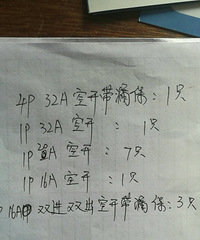 4P 32A 空开带漏保：1只
1P 32A 空开：1只
1P 20A 空开：7只
1P 16A 空开：1只
P 16A 双进双出空开带漏保：3只